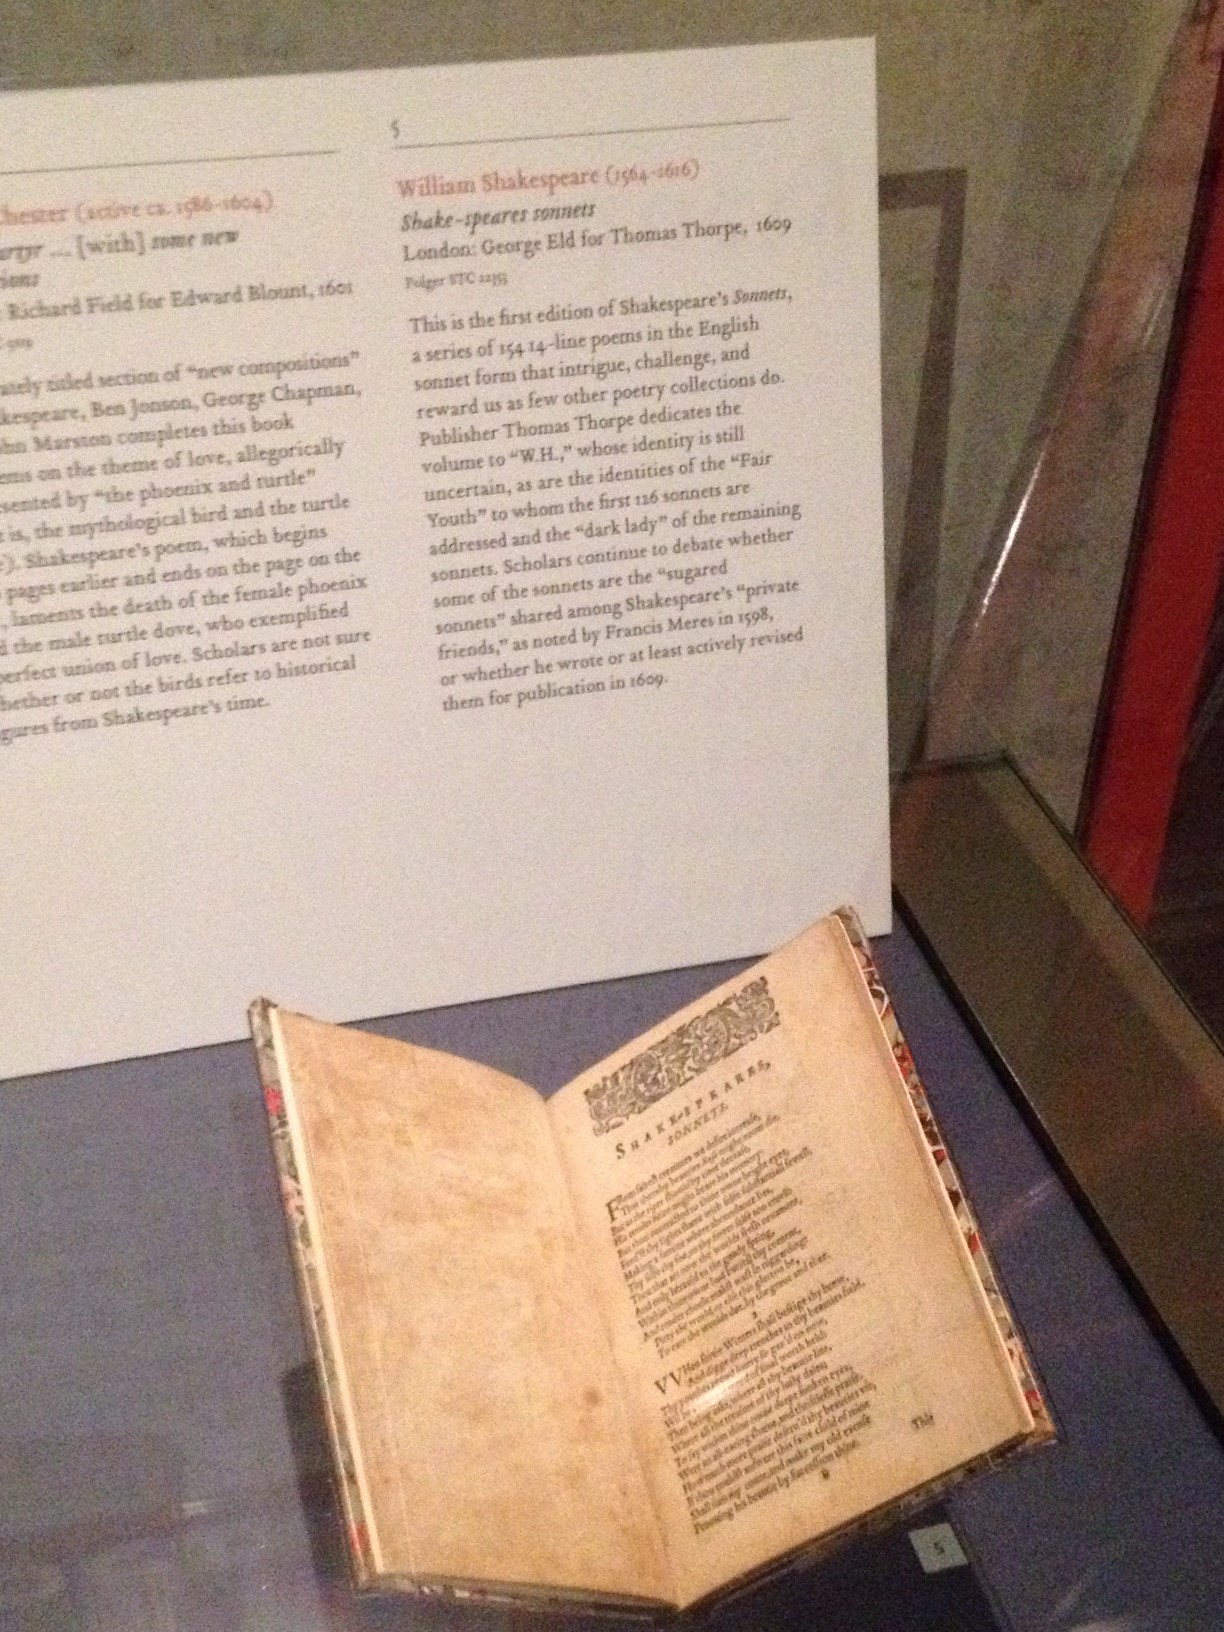 Chester (active ca. 1586–1604)
... [with] some new
Richard Field for Edward Blount, 1601
titled section of “new compositions”
Ben Jonson, George Chapman,
John Marston completes this book
on the theme of love, allegorically
by “the phoenix and turtle”
is, the mythological bird and the turtle
Shakespeare’s poem, which begins
pages earlier and ends on the page on the
laments the death of the female phoenix
the male turtle dove, who exemplified
perfect union of love. Scholars are not sure
whether or not the birds refer to historical
figures from Shakespeare’s time.
5
William Shakespeare (1564–1616)
Shake-speares sonnets
London: George Eld for Thomas Thorpe, 1609
Folger STC 22353
This is the first edition of Shakespeare’s Sonnets,
a series of 154 14-line poems in the English
sonnet form that intrigue, challenge, and
reward us as few other poetry collections do.
Publisher Thomas Thorpe dedicates the
volume to “W.H.,” whose identity is still
uncertain, as are the identities of the “Fair
Youth” to whom the first 126 sonnets are
addressed and the “dark lady” of the remaining
sonnets. Scholars continue to debate whether
some of the sonnets are the “sugared
sonnets” shared among Shakespeare’s “private
friends,” as noted by Francis Meres in 1598,
or whether he wrote or at least actively revised
them for publication in 1609.
SHAKE-SPEARES,
SONNETS.
FRom fairest creatures we desire increase,
That thereby beauties Rose might neuer die,
But as the riper should by time decease,
His tender heire might beare his memory:
But thou contracted to thine owne bright eyes,
Feed'st thy lights flame with selfe substantiall fewell,
Making a famine where aboundance lies,
Thy selfe thy foe, to thy sweet selfe too cruell:
Thou that art now the worlds fresh ornament,
And only herauld to the gaudy spring,
Within thine owne bud buriest thy content,
And tender chorle makst wast in niggarding:
Pitty the world, or else this glutton be,
To eate the worlds due, by the graue and thee.
2
VVHen fortie Winters shall beseige thy brow,
And digge deep trenches in thy beauties field,
Thy youthes proud liuery so gaz'd on now,
Wil be of smal worth held:
Then being askt, where all thy beautie lies,
Where all the treasure of thy lusty daies;
To say within thine owne deepe sunken eyes,
Were an all-eating shame, and thriftlesse praise.
How much more praise deseru'd thy beauties vse,
If thou couldst answere this faire child of mine
Shall sum my count, and make my old excuse
Proouing his beautie by succession thine.
This
5